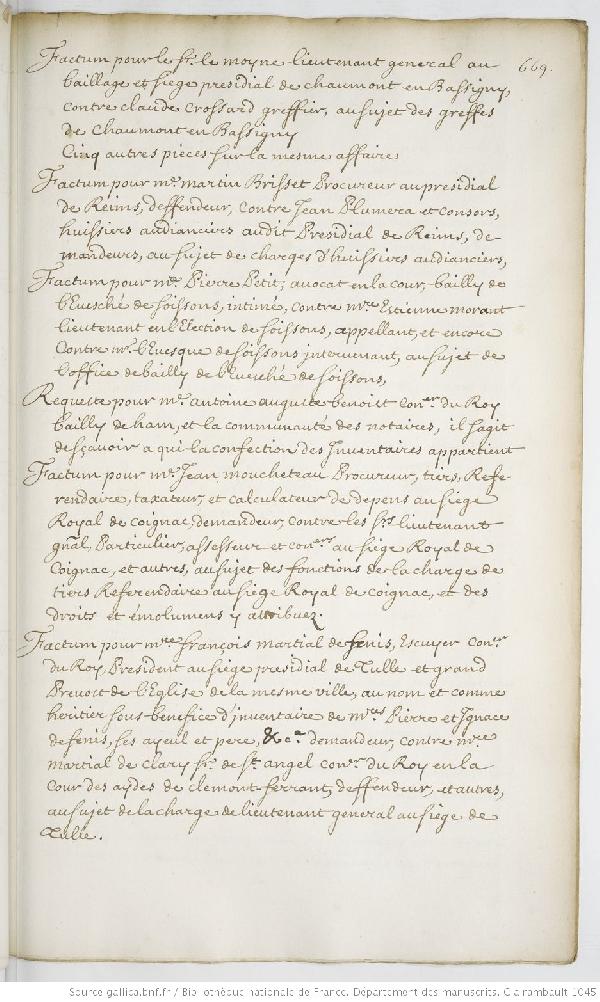 669.
Factum pour le sr. le moyne lieutenant general au
baillage et siege presidial de chaumont en Bassigny,
contre claude Crossard greffier, au sujet des greffes
de Chaumont en Bassigny
Cinq autres pieces sur la mesme affaire
Factum pour me. martin Brisset Procureur au presidial
de Reims, deffendeur, contre Jean Plumera et consors,
huissiers audianciers audit Presidial de Reims, de-
mandeurs, au sujet de charges d'huissiers audianciers,
Factum pour me. Pierre Petit, avocat en la cour, bailly de
l'Evesché de soissons, intimé, contre mre. Estienne morant
lieutenant en l'Election de soissons, appellant, et encore
Contre mr. l'Evesque de soissons intervenant, au sujet de
l'office de bailly de l'Evesché de soissons,
Requeste pour me. antoine auguste benoist Coner. du Roy
bailly de ham, et la communauté des notaires, il s'agit
de sçavoir a qui la confection des Inventaires appartient
Factum pour me. Jean moucheteau Procureur, tiers, Refe-
rendaire, taxateur, et calculateur de depens au siege
Royal de Coignac, demandeur, contre les srs. lieutenant
gnal, Particulier, assesseur et coners. au siege Royal de
Coignac, et autres, au sujet des fonctions de la charge de
tiers Referendaire au siege Royal de Coignac, et des
droits et émolumens y attribuez.
Factum pour mre. françois martial de fenis, Escuyer Coner.
du Roy, President au siege presidial de Tulle et grand
Prevost de l'Eglise de la mesme ville, au nom et comme
heritier sous benefice d'inventaire de mres. Pierre et Ignace
de fenis, ses ayeul et pere, &ca. demandeur, contre mre.
martial de Clary sr. de st. angel coner. du Roy en la
Cour des aydes de clemont ferrant, deffendeur, et autres,
au sujet de la charge de lieutenant general au siege de
Tulle.
Source gallica.bnf.fr / Bibliothèque nationale de France. Département des manuscrits. Clairambault 1045